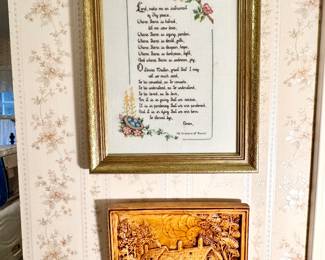 Lord, make me an instrument
of thy peace.
Where there is hatred,
let me sow love,
Where there is injury, pardon,
Where there is doubt, faith,
Where there is despair, hope,
Where there is darkness, light,
And where there is sadness, joy.
O Divine Master, grant that I may
not so much seek,
To be consoled, as to console,
To be understood, as to understand,
To be loved, as to love,
For it is in giving that we receive,
It is in pardoning that we are pardoned,
And it is in dying that we are born
to eternal life.
Amen.
St. Francis of Assisi